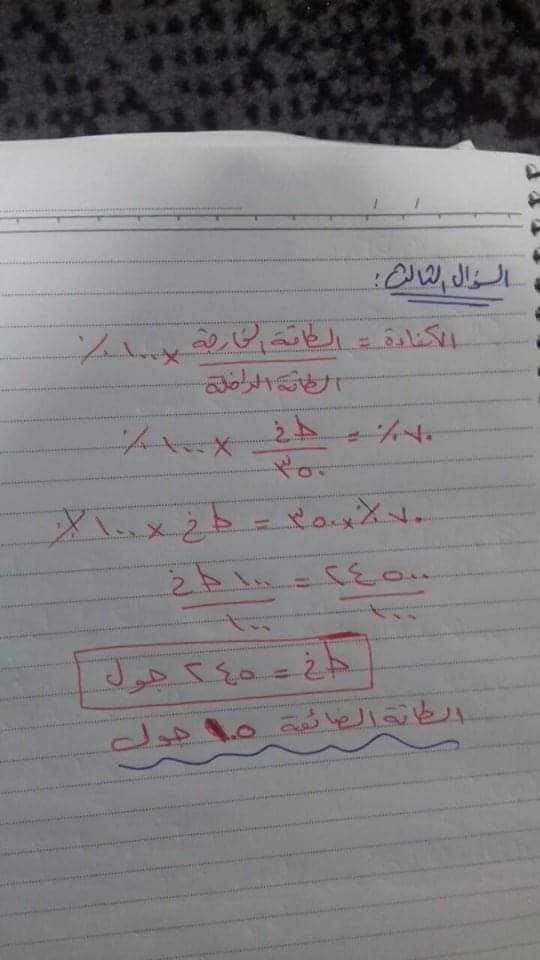 السؤال الثالث:
الكفاءة = الطاقة الخارجة / الطاقة الداخلة × ١٠٠ ٪
٧٠٪ = طخ / ٣٥٠ × ١٠٠ ٪
٧٠٪ × ٣٥٠ = طخ × ١٠٠ ٪
٢٤٥٠٠ / ١٠٠ = ١٠٠ طخ / ١٠٠
طخ = ٢٤٥ جول
الطاقة الضائعة ١٠٥ جول